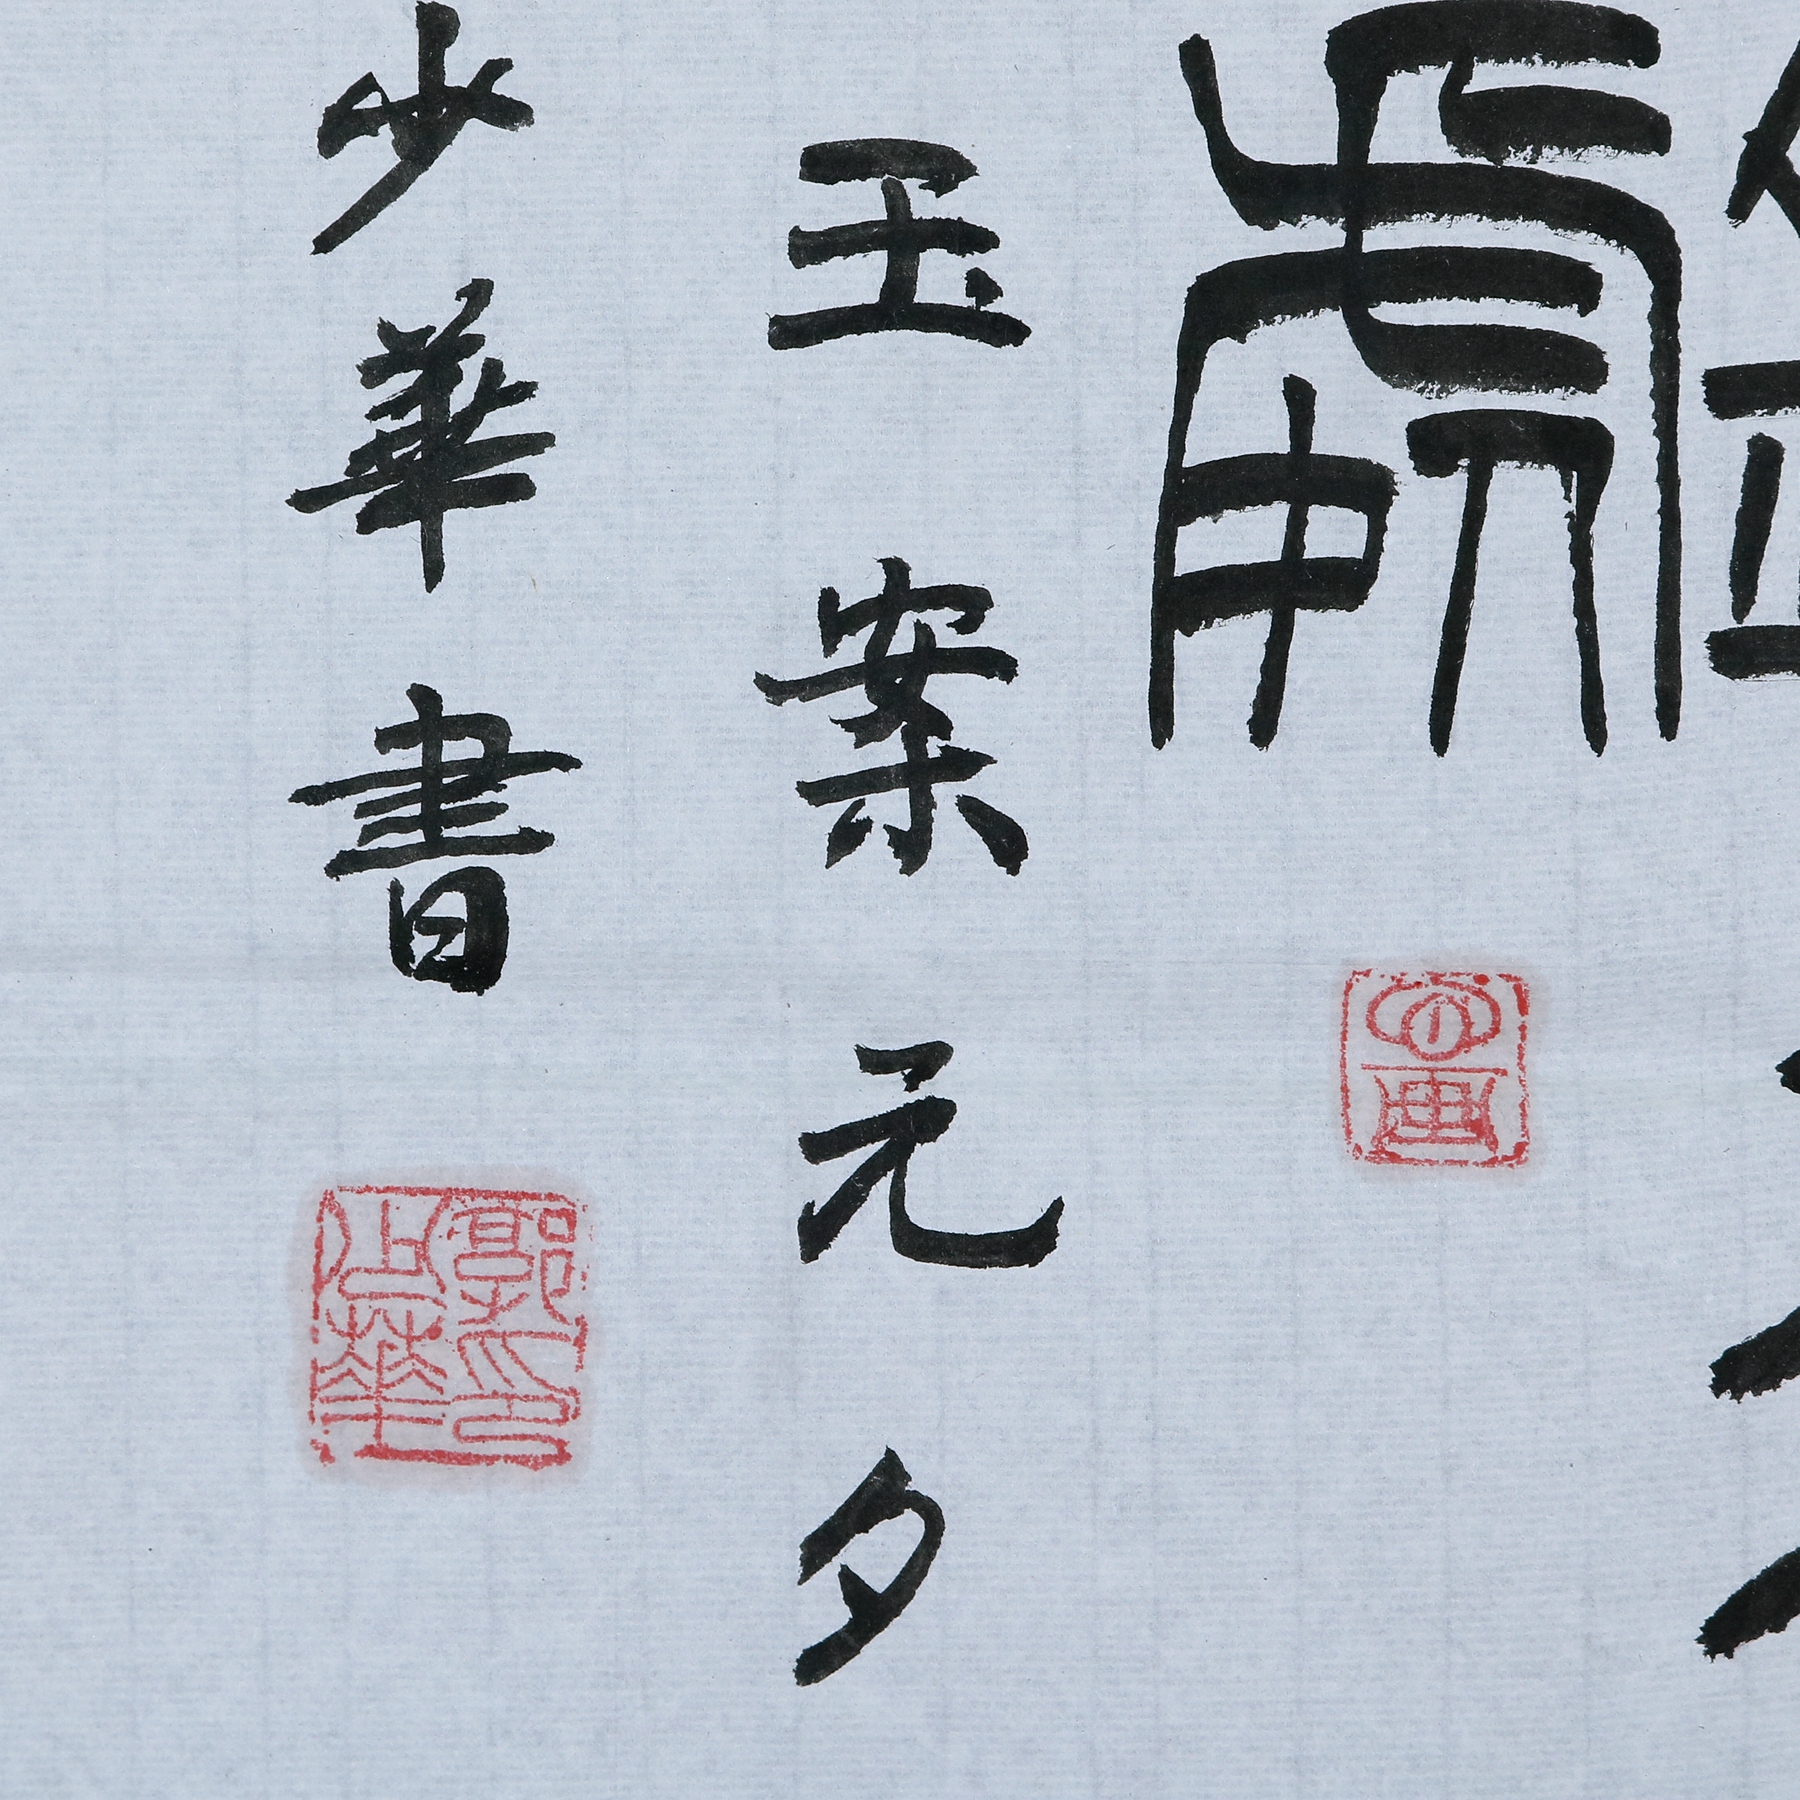 處
玉案元夕
少華書
郭印
少華